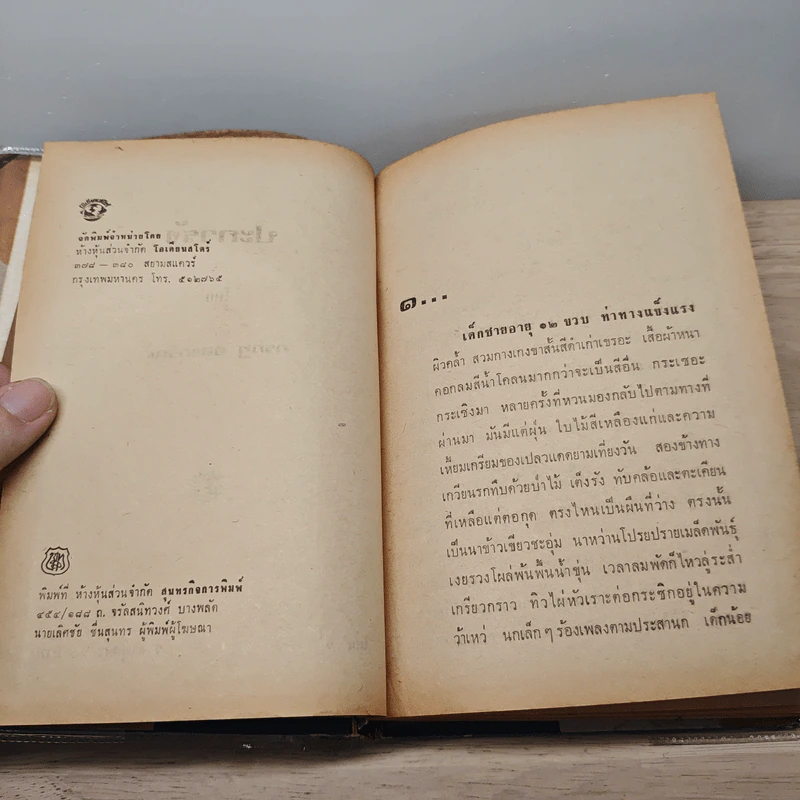 จัดพิมพ์จำหน่ายโดย
ห้างหุ้นส่วนจำกัด โอเดียนสโตร์
๓๗๘ — ๓๘๐ สยามสแควร์
กรุงเทพมหานคร โทร. ๕๑๒๗๖๕
พิมพ์ที่ ห้างหุ้นส่วนจำกัด สุนทรกิจการพิมพ์
๔๕๔/๑๘๘ ถ. จรัลสนิทวงศ์ บางพลัด
นายเลิศชัย ชื่นสุนทร ผู้พิมพ์ผู้โฆษณา
๑...
เด็กชายอายุ ๑๒ ขวบ ท่าทางแข็งแรง
ผิวคล้ำ สวมกางเกงขาสั้นสีดำเก่าเขรอะ เสื้อผ้าหนา
คอกลมสีน้ำโคลนมากกว่าจะเป็นสีอื่น กระเซอะ
กระเซิงมา หลายครั้งที่หวนมองกลับไปตามทางที่
ผ่านมา มันมีแต่ฝุ่น ใบไม้สีเหลืองแก่และความ
เหี้ยมเกรียมของเปลวแดดยามเที่ยงวัน สองข้างทาง
เกวียนรกทึบด้วยป่าไม้ เต็งรัง ทับคล้อและตะเคียน
ที่เหลือแต่ตอกุด ตรงไหนเป็นผืนที่ว่าง ตรงนั้น
เป็นนาข้าวเขียวชะอุ่ม นาหว่านโปรยปรายเมล็ดพันธุ์
เงยรวงโผล่พ้นพื้นน้ำขุ่น เวลาลมพัดก็ไหวลู่ระส่ำ
เกรียวกราว ทิวไผ่หัวเราะต่อกระซิกอยู่ในความ
ว้าเหว่ นกเล็กๆ ร้องเพลงตามประสานก เด็กน้อย